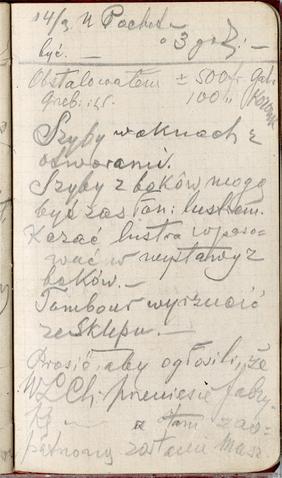 14/9 U Poch
być. — o 3 godz: —
Obstalowałem ± 500 fr gab
Greb: i t. 100 "
Szyby w oknach z
otworami.
Szyby z boków mogą
być zasłon: lustrem.
Kazać lustra wpaso-
wać w wystawy z
boków. —
Tambour wyrzucić
ze sklepu. —
Prosić, aby ogłosili, że
WLCh: przeniesie fabry-
kę — a tam zao-
patrzony zostanie Masz.